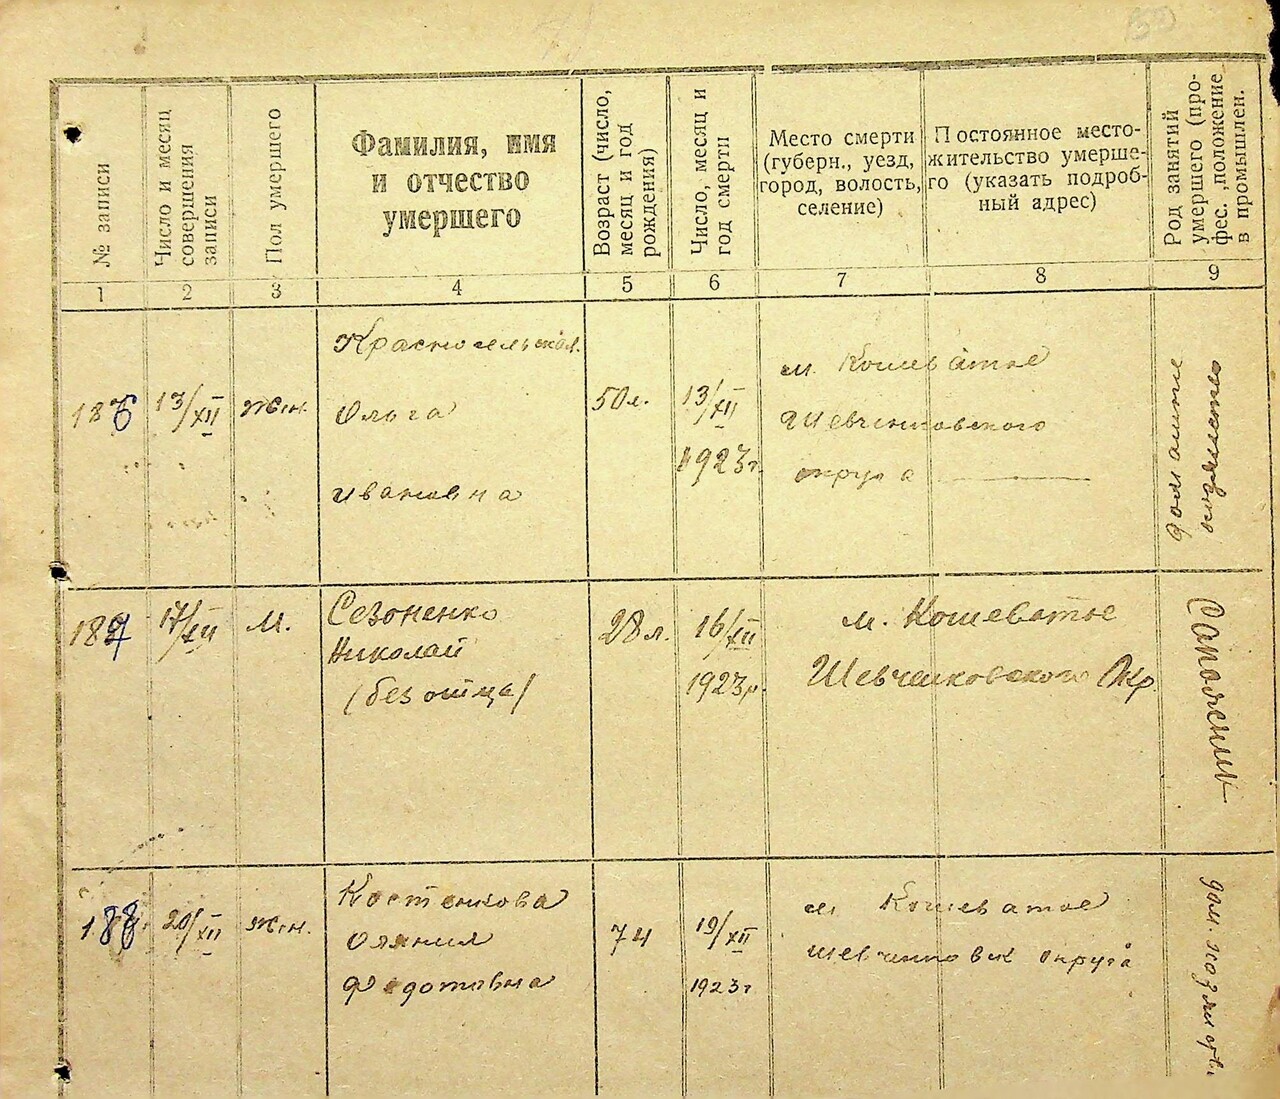 № записи
Число и месяц
совершения
записи
Пол умершего
Фамилия, имя
и отчество
умершего
Возраст (число,
месяц и год
рождения)
Число, месяц и
год смерти
Место смерти
(губерн., уезд,
город, волость,
селение)
Постоянное место-
жительство умерше-
го (указать подроб-
ный адрес)
Род занятий
умершего (про-
фес., положение
в промышлен.
1 2 3 4 5 6 7 8 9
186
13/XII
жен.
Красносельская
Ольга
Ивановна
50 л.
13/XII
1923 г.
м. Кошеватое
Шевченковского
округа
домашнее
хозяйство
187
17/XII
м.
Сезоненко
Николай
(без отца)
28 л.
16/XII
1923 г.
м. Кошеватое
Шевченковского Окр
Сапожник
188
20/XII
жен.
Костенкова
Федотовна
74
19/XII
1923 г
м Кошеватое
Шевченковск округа
дом. хозяйств.